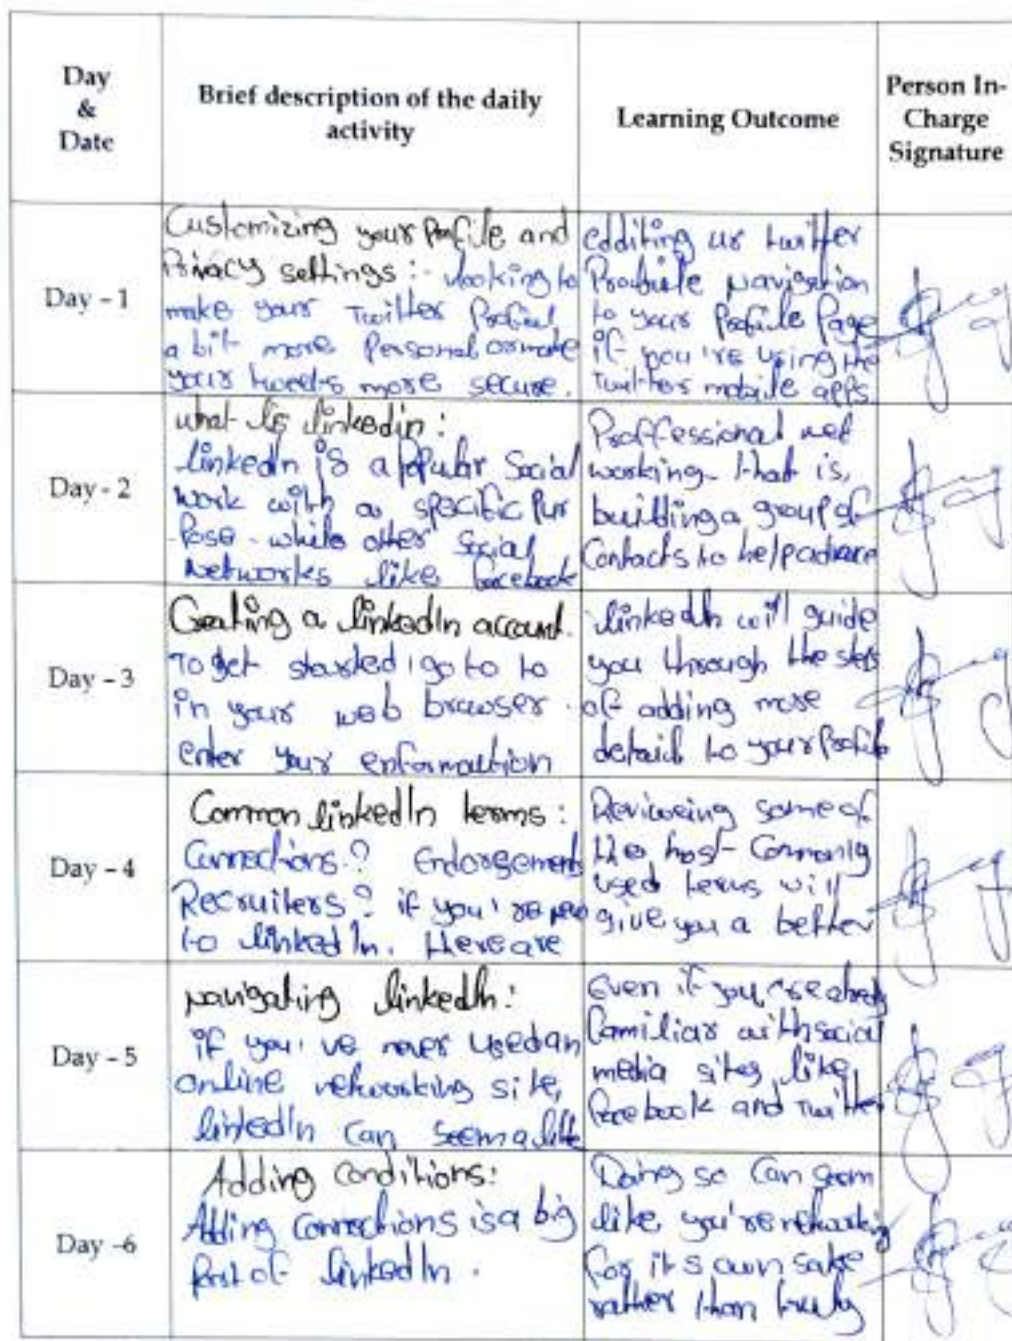 Day
&
Date
Brief description of the daily
activity
Learning Outcome
Person In-
Charge
Signature
Day - 1
Customizing your Profile and
Privacy settings :- looking to
make your Twitter
a bit more Personal or make
your tweets more secure.
edditing ur twitter
navigation
to your Profile Page
if you're using the
Twitters mobile apps
Day - 2
what is linkedin :
linkedIn is a Popular Social
work with a specific Pur
Pose - while other Social
Networks like facebook
Proffessional net
working - that is,
buildling a group of
Contacts to help
Day - 3
Creating a linkedIn account.
To get started go to to
in your web browser .
enter your enformaution
linkedIn will guide
you through the steps
of adding more
details to your Profile
Day - 4
Common linkedIn terms :
Connections ? Endorsement
Recruiters ? if you're new
to linkedIn. Here are
Reviewing some of
the Commonly
used terms will
give you a better
Day - 5
navigating linkedIn :
if you've never used an
online networking site,
linkedIn can seem a little
Even if you're already
familiar with social
media sites like
facebook and Twitter
Day -6
Adding conditions:
Adding connections is a big
Part of linkedIn .
Doing so Can seem
like you're networking
for its own sake
rather than truly